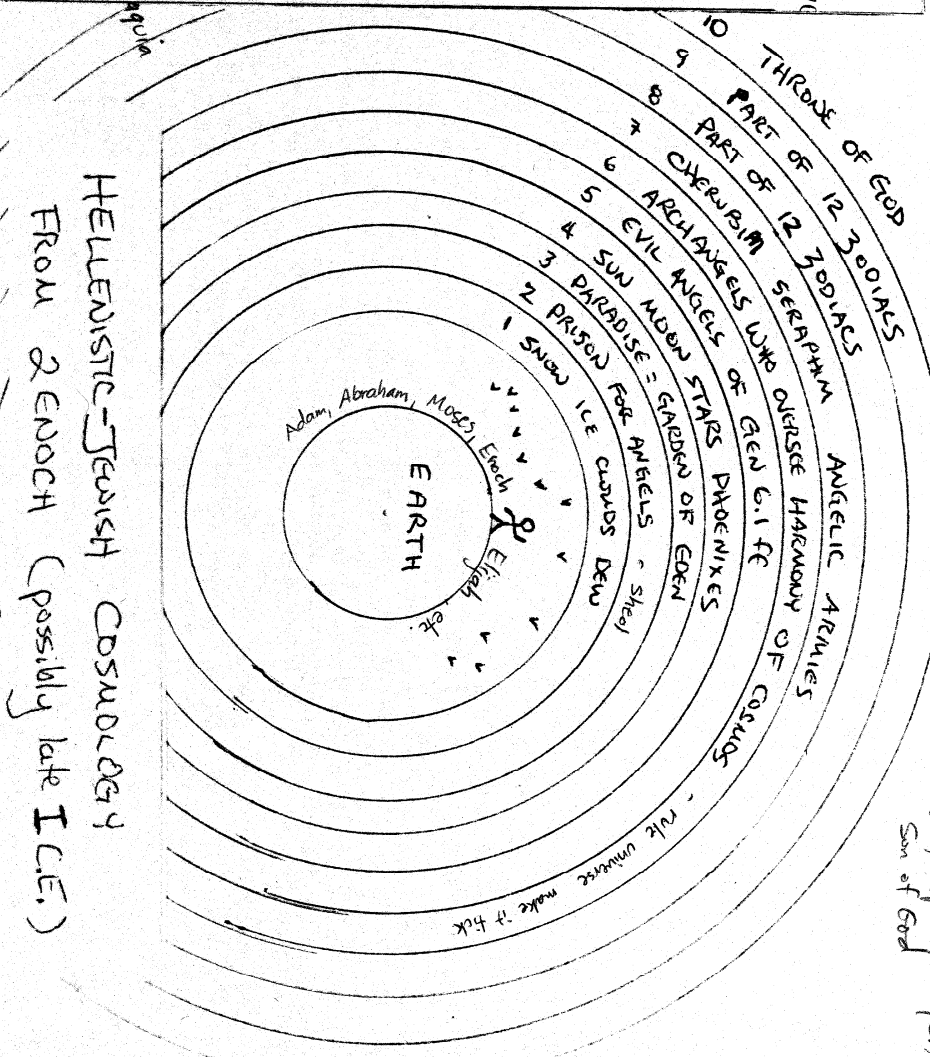 10 THRONE OF GOD
9 PART OF 12 ZODIACS
8 PART OF 12 ZODIACS
7 CHERUBIM SERAPHIM ANGELIC ARMIES
6 ARCHANGELS WHO OVERSEE HARMONY OF COSMOS - rule universe make it tick
5 EVIL ANGELS OF GEN 6.1 ff
4 SUN MOON STARS PHOENIXES
3 PARADISE = GARDEN OF EDEN
2 PRISON FOR ANGELS = Sheol
1 SNOW ICE CLOUDS DEW
Adam, Abraham, Moses, Enoch Elijah, etc.
EARTH
HELLENISTIC-JEWISH COSMOLOGY
FROM 2 ENOCH (possibly late I C.E.)
Son of God